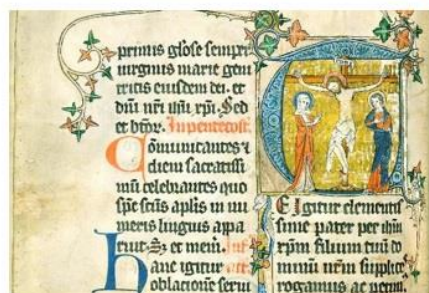 primis gl̄ose semper
uirginis marie geni
tricis eiusdem dei. et
dñi nr̄i ihū xp̄i. Sed
et bt̄or. In pentecost.
Cōmunicantes ⁊
diem sacratissi
mū celebrantes quo
sp̄c sc̄us aplis in nu
meris linguis appa
ruit. Sȝ et mem.
Hanc igitur
oblacionē serui
Te Igitur clementis
sime pater per ihm̄
xp̄m filium tuū do
minū nr̄m supplice
rogamus ac petim̄.